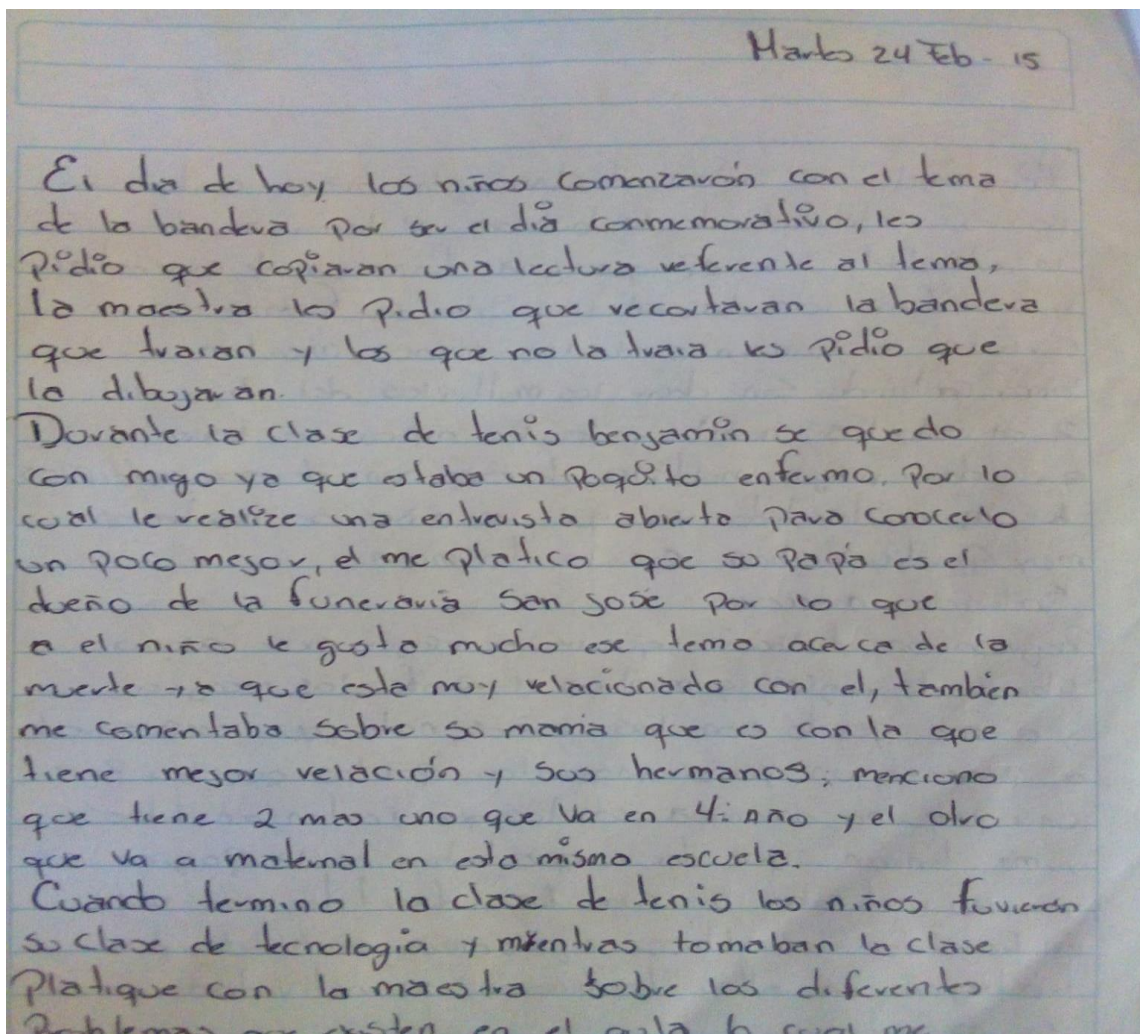 Martes 24 Feb - 15
El dia de hoy los niños comenzarón con el tema
de la bandera por ser el día conmemorativo, les
pidió que copiaran una lectura referente al tema,
la maestra les pidio que recortaran la bandera
que traian y los que no la traia les pidió que
la dibujaran.
Durante la clase de tenis benjamín se quedo
con migo ya que estaba un poquito enfermo. Por lo
cual le realize una entrevista abierta para conocerlo
un poco mejor, el me platico que su papá es el
dueño de la funeraria San jose por lo que
a el niño le gusta mucho ese tema acerca de la
muerte ya que esta muy relacionado con el, también
me comentaba sobre su mamá que es con la que
tiene mejor relación y sus hermanos; menciono
que tiene 2 mas uno que va en 4: Año y el otro
que va a maternal en esta misma escuela.
Cuando termino la clase de tenis los niños tuvieron
su clase de tecnologia y mientras tomaban la clase
Platique con la maestra sobre los diferentes
Problemas que existen en el aula lo cual me